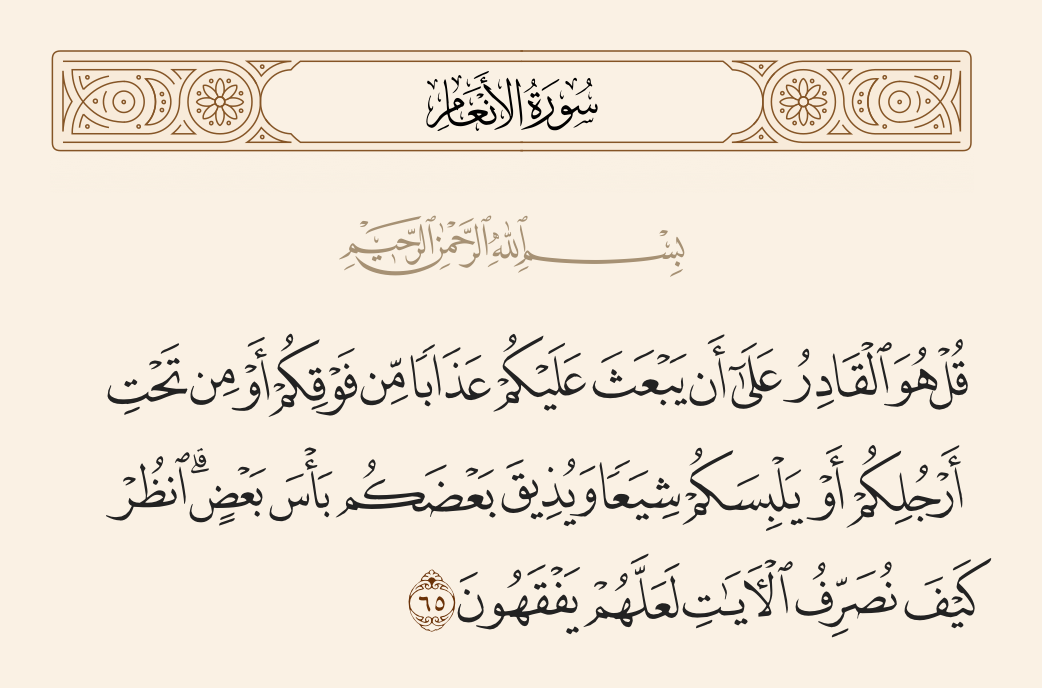 سُورَةُ الأَنْعَامِ
بِسْمِ ٱللَّهِ ٱلرَّحْمَٰنِ ٱلرَّحِيمِ
قُلْ هُوَ ٱلْقَادِرُ عَلَىٰٓ أَن يَبْعَثَ عَلَيْكُمْ عَذَابًا مِّن فَوْقِكُمْ أَوْ مِن تَحْتِ
أَرْجُلِكُمْ أَوْ يَلْبِسَكُمْ شِيَعًا وَيُذِيقَ بَعْضَكُم بَأْسَ بَعْضٍ ۗ ٱنظُرْ
كَيْفَ نُصَرِّفُ ٱلْـَٔايَـٰتِ لَعَلَّهُمْ يَفْقَهُونَ ٦٥